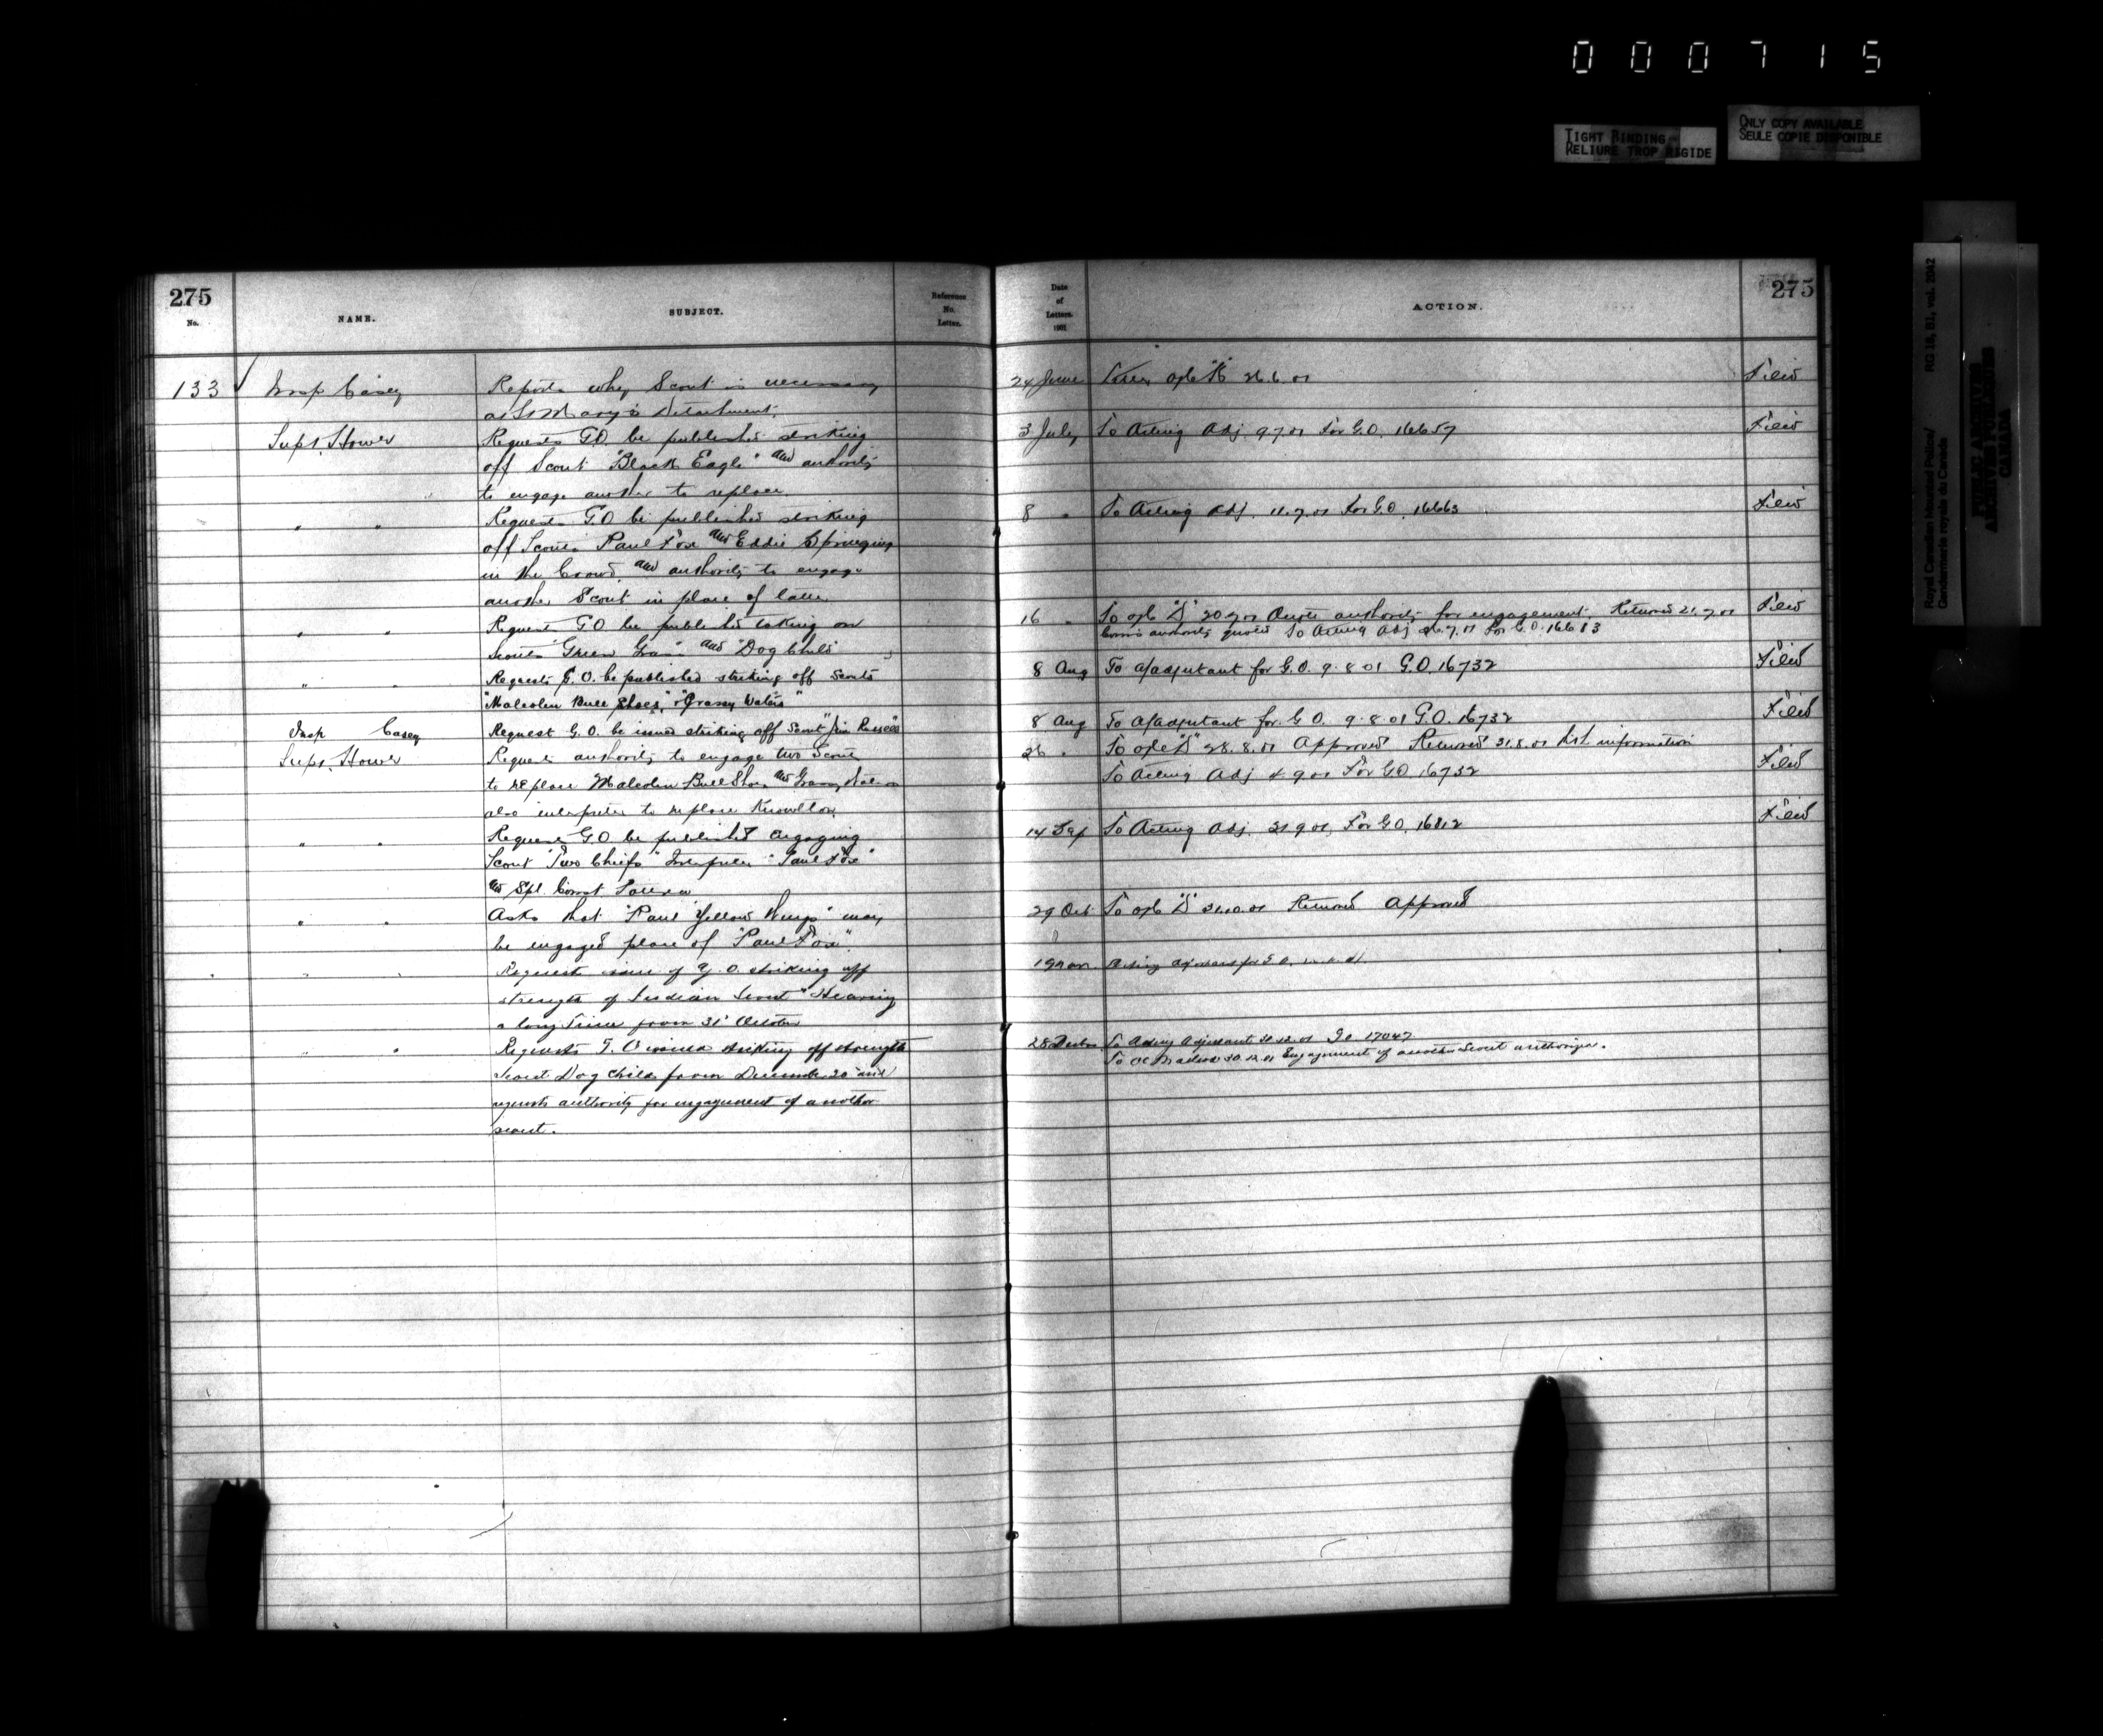 000715
TIGHT BINDING
RELIURE TROP RIGIDE
ONLY COPY AVAILABLE
SEULE COPIE DISPONIBLE
Royal Canadian Mounted Police/
Gendarmerie royale du Canada
RG 18, B1, vol. 2042
PUBLIC ARCHIVES
ARCHIVES PUBLIQUES
CANADA
275
No.
NAME.
SUBJECT.
Reference
No.
Letter.
133 Insp Casey
Reports why Scout is necessary
at St Mary's Detachment.
Supt. Howe
Requests G.O. be published striking
off Scout "Black Eagle" and authority
to engage another to replace.
" "
Requests G.O. be published striking
off Scouts Paul Fox and Eddie Springing
in the Crowd, and authority to engage
another Scout in place of latter
" "
Requests G.O. be published taking on
Scouts "Green Grass" and "Dog Child"
" "
Requests G.O. be published striking off Scouts
"Malcolm Bull Shoes," "Grassy Water"
Insp Casey
Request G.O. be issued striking off Scout "Jim Russell"
Supt. Howe
Requests authority to engage two Scouts
to replace Malcolm Bull Shoes and Grassy Water
also interpreter to replace Knowlton.
" "
Requests G.O. be published engaging
Scout "Two Chiefs" Interpreter "Paul Fox"
and Spl. Const
" "
Asks that "Paul Yellow Wings" may
be engaged place of "Paul Fox".
" "
Request issue of G.O. striking off
strength of Indian Scout "Hearing
a long time from 31st October
" "
Requests G.O. issued striking off strength
Scout Dog Child from December 20 and
requests authority for engagement of another
scout.
Date
of
Letters.
1901
ACTION.
275
24 June 26.6.01 Filed
3 July To Acting Adj. 9.7.01 For G.O. 16657 Filed
8 " To Acting Adj. 11.7.01 For G.O. 16663 Filed
16 " To O/C "D" 20.7.01 Quote authority for engagement. Returned 21.7.01 Filed
authority quoted To Acting Adj .7.01 For G.O. 16683
8 Aug To a/adjutant for G.O. 9.8.01 G.O. 16732 Filed
8 Aug To a/adjutant for G.O. 9.8.01 G.O. 16732 Filed
26 " To O/C "D" 28.8.01 Approved Returned 31.8.01 information
To Acting Adj 4.9.01 For G.O. 16732 Filed
14 Sep To Acting Adj. 21.9.01, For G.O. 16812 Filed
29 Oct To O/C "D" 31.10.01 Returned Approved
19 Nov. Acting Adjutant for G.O.
28 Decbr To Acting Adjutant 31.12.01 Go 17047
To OC Macleod 30.12.01 Engagement of another Scout authorized.